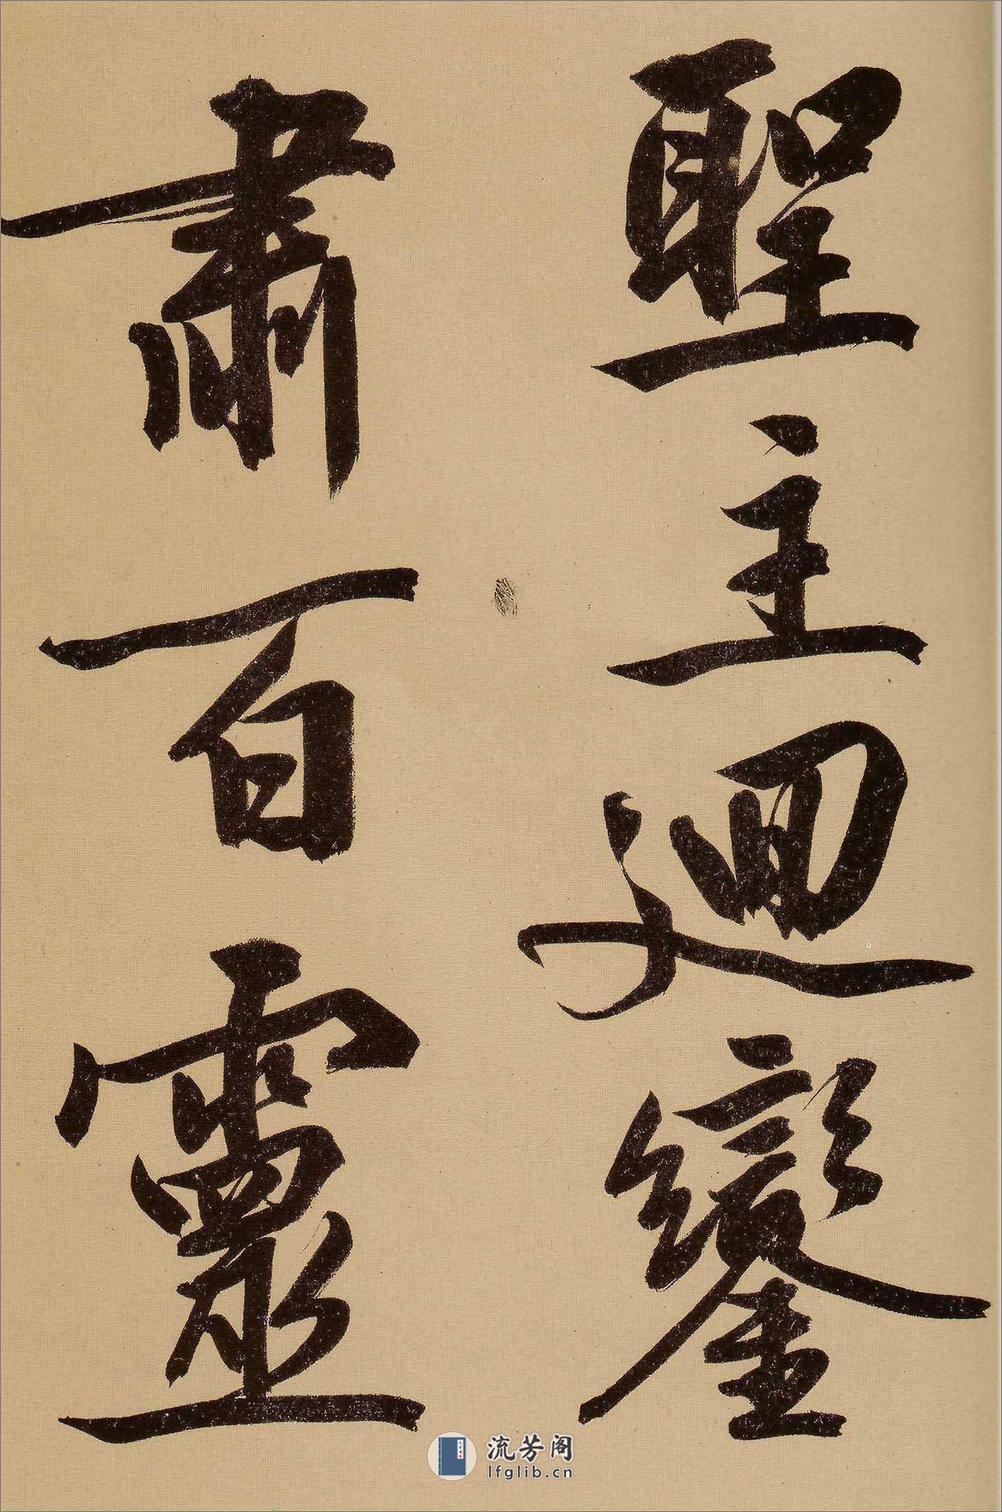 聖主迴鑾
肅百靈
流芳阁
lfglib.cn